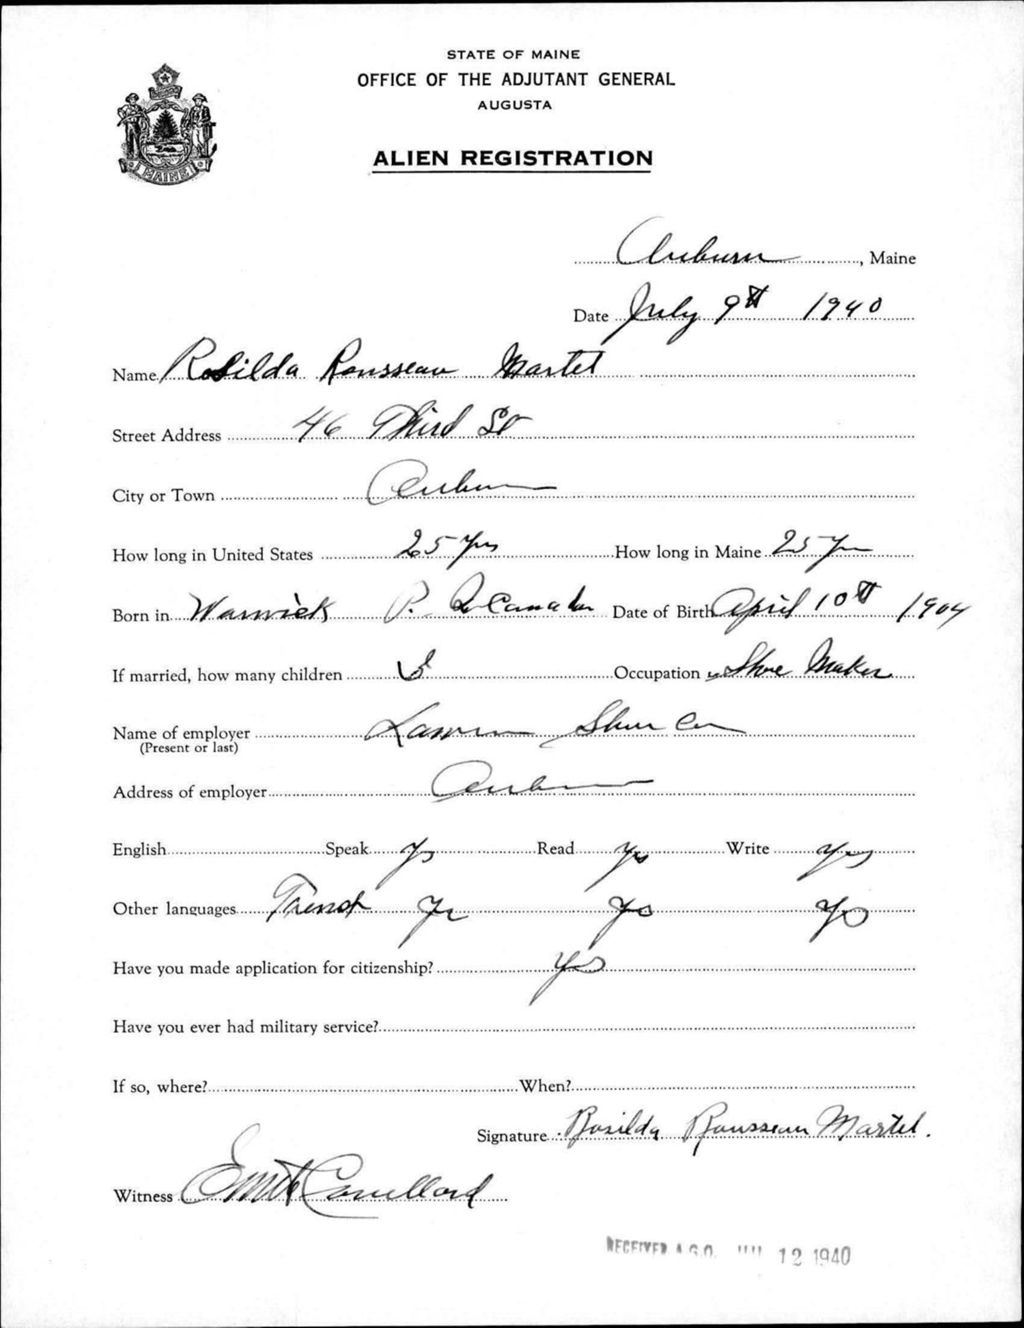 STATE OF MAINE
OFFICE OF THE ADJUTANT GENERAL
AUGUSTA
MAINE
ALIEN REGISTRATION
Auburn, Maine
Date July 9th 1940
Name Rosilda Rousseau Martel
Street Address 46 Third St
City or Town Auburn
How long in United States 25 yrs How long in Maine 25 yrs
Born in Warwick P. Q Canada Date of Birth April 10th 1904
If married, how many children 3 Occupation Shoe Maker
Name of employer Shoe Co
(Present or last)
Address of employer Auburn
English Speak yes Read yes Write yes
Other languages French yes yes yes
Have you made application for citizenship? yes
Have you ever had military service?
If so, where? When?
Signature Rosilda Rousseau Martel.
Witness
RECEIVED A.G.O. JUL 12 1940